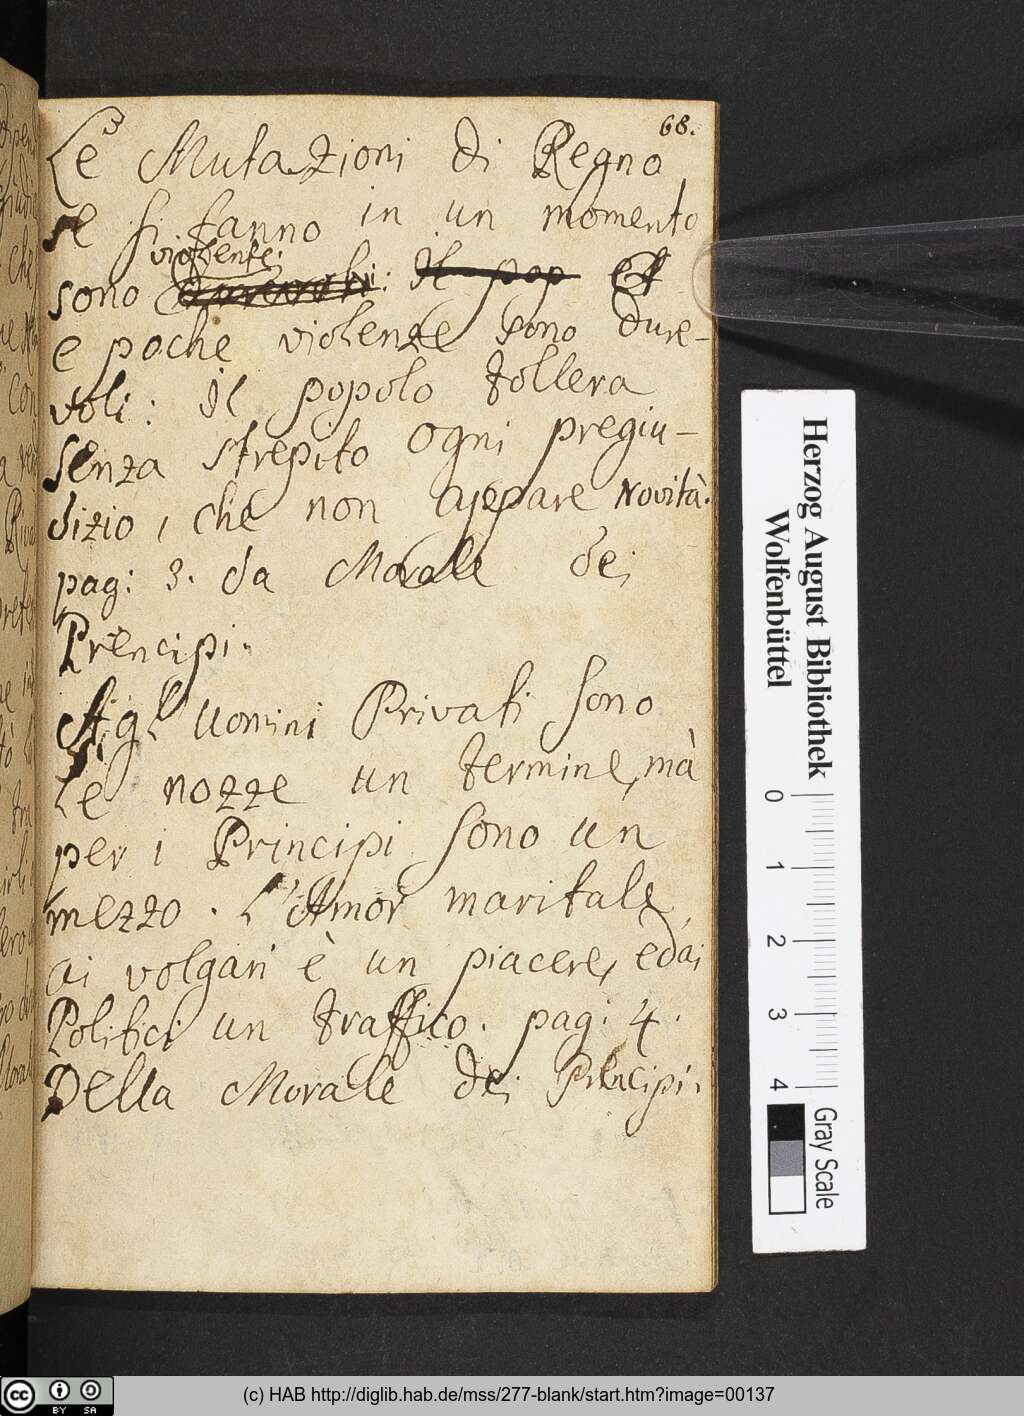 68.
Le Mutazioni di Regno,
se si fanno in un momento
violente:
sono il pop et
e poche violenze sono dure-
voli: il popolo tollera
senza strepito ogni pregiu-
dizio, che non appare Novità.
pag: 3. da Morale dei
Principi.
Agl' Uomini Privati sono
le nozze un termine, mà
per i Principi sono un
mezzo. L'Amor maritale,
ai volgari è un piacere, e dai
Politici un traffico. pag: 4.
Della Morale dei Principi.
Herzog August Bibliothek
Wolfenbüttel
0 1 2 3 4
Gray Scale
(c) HAB http://diglib.hab.de/mss/277-blank/start.htm?image=00137
cc BY SA